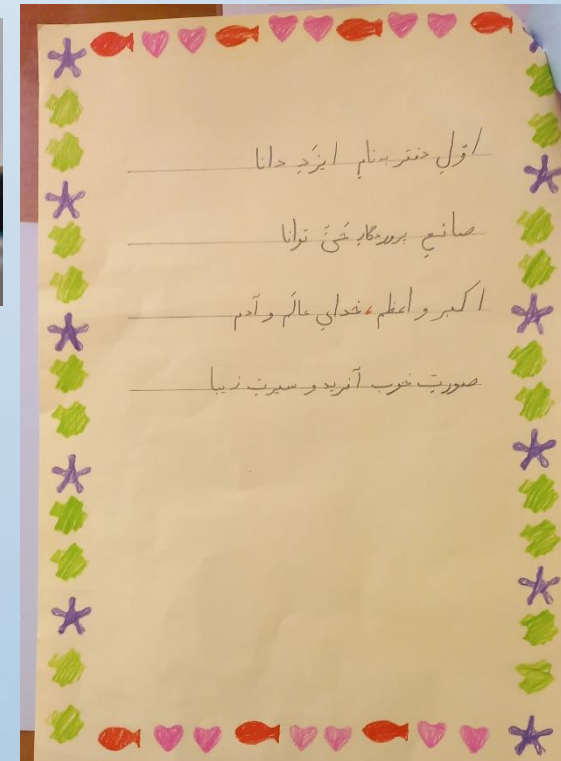 اوّلِ دفتر به نامِ ایزَدِ دانا
صانعِ پروردگارِ حَیِّ توانا
اکبر و اعظم، خدایِ عالَم و آدم
صورتِ خوب آفرید و سیرتِ زیبا